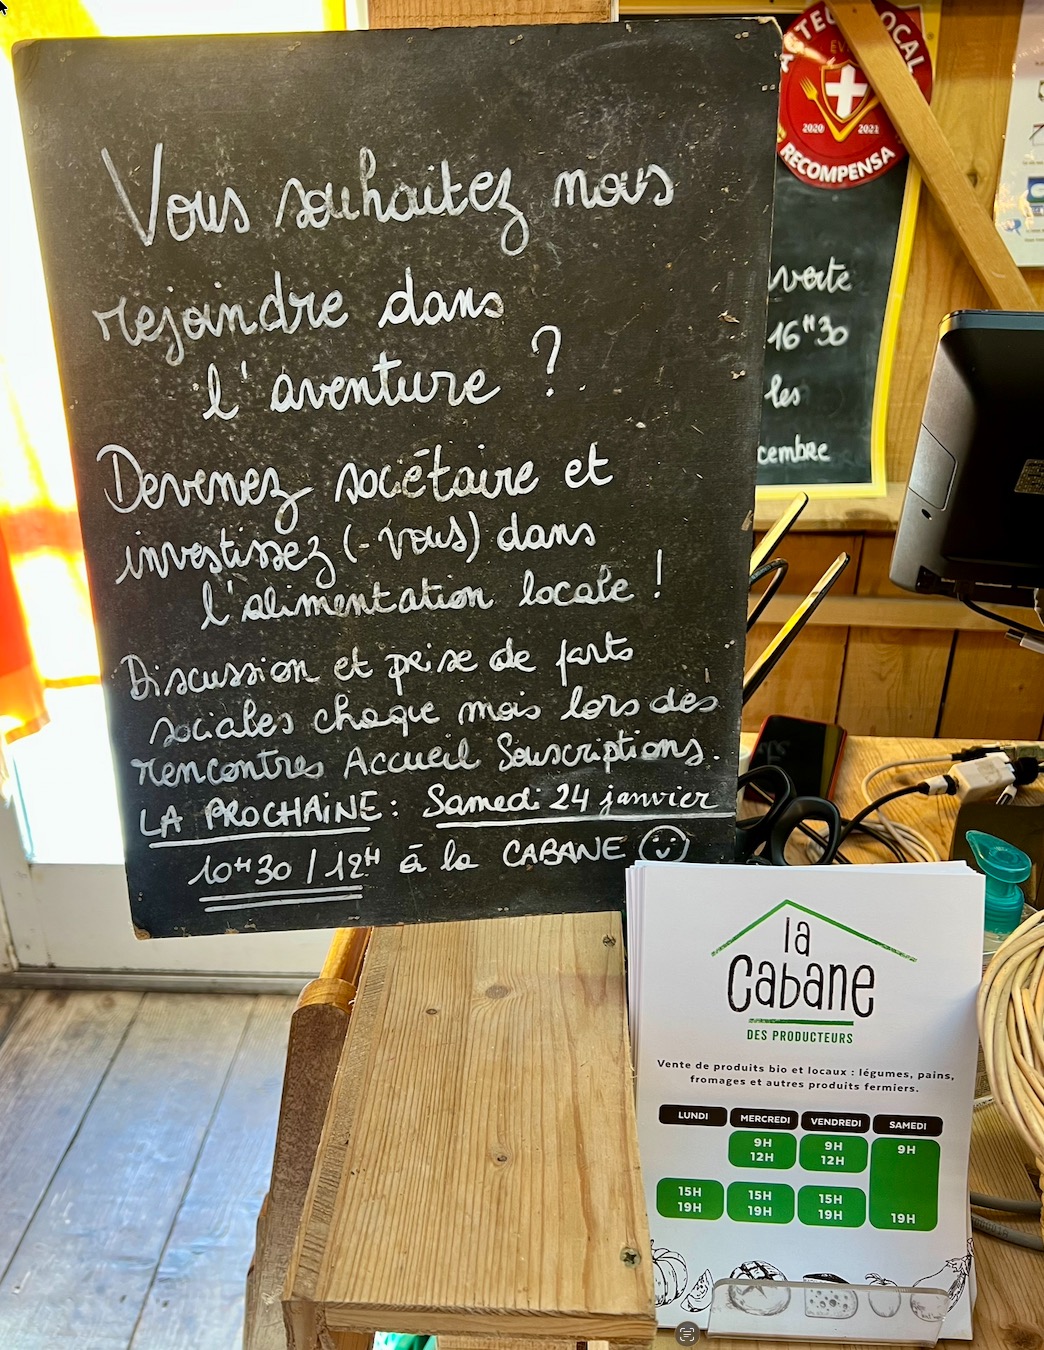 Vous souhaitez nous
rejoindre dans
l'aventure ?
Devenez sociétaire et
investissez (-vous) dans
l'alimentation locale !
Discussion et prise de parts
sociales chaque mois lors des
rencontres Accueil Souscriptions.
LA PROCHAINE : Samedi 24 janvier
10H30 / 12H à la CABANE
LOCAL
2020 2021
RECOMPENSA
verte
16H30
les
cembre
la
Cabane
DES PRODUCTEURS
Vente de produits bio et locaux : légumes, pains,
fromages et autres produits fermiers.
LUNDI MERCREDI VENDREDI SAMEDI
9H 9H 9H
12H 12H
15H 15H 15H
19H 19H 19H 19H